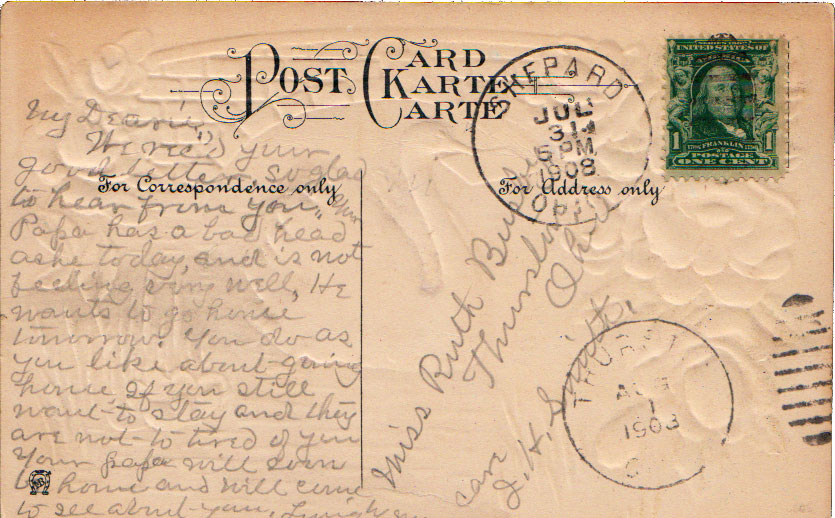 POST CARD
KARTE
CARTE
For Correspondence only
For Address only
My Dearie,
We rec'd your
good letter, so glad
to hear from you,
Papa has a bad head
ashe today, and is not
feeling very well, He
wants to go home
tomorrow. You do as
you like about going
home, If you still
want to stay and they
are not to tired of you
Your papa will soon
be home and will come
to see about you,
SHEPARD
JUL
31
6 PM
1908
OHIO
SERIES 1902
UNITED STATES OF AMERICA
1 1
FRANKLIN
POSTAGE
ONE CENT
Miss Ruth
Thurston
Ohio
care
J. H. Smith,
THURST
AUG
1
1908
O